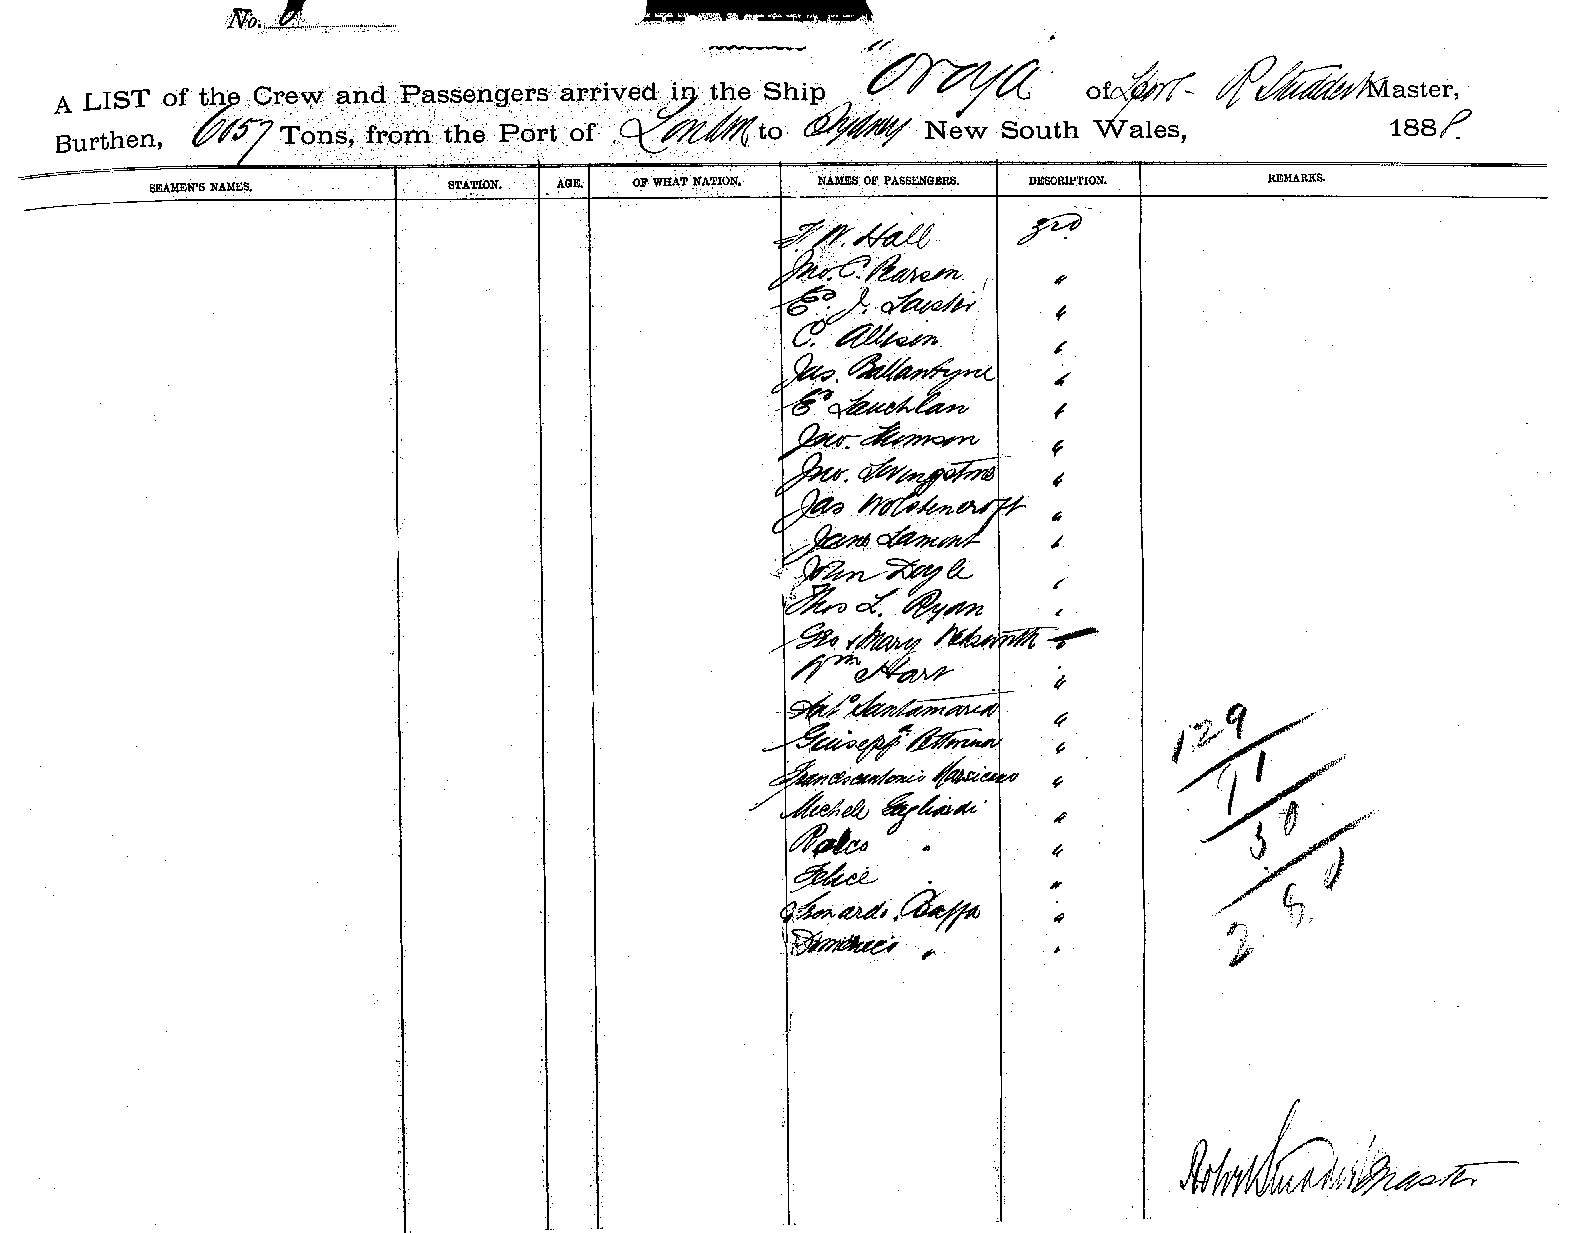 No.
A LIST of the Crew and Passengers arrived in the Ship "Oroya" of Lpool - R Studdert Master,
Burthen, 6057 Tons, from the Port of London to Sydney New South Wales, 188
SEAMEN'S NAMES. STATION. AGE. OF WHAT NATION. NAMES OF PASSENGERS. DESCRIPTION. REMARKS.
F. W. Hall 3rd
Jno. C. Pearson "
Ed. J. "
C. Allison "
Jas. Ballantyne "
Ed Lauchlan "
Jno. Thomson "
Jno. Livingstone "
Jas Wolstencroft "
Jane Lamont "
John Doyle "
Thos L. Ryan "
Geo & Mary "
Wm Hart "
Anto Santamaria "
Giuseppe "
Francescantonio "
Michele Gagliardi "
Rocco " "
Felice " "
Leonardo "
Domenico " "
129
71
30
Robt Studdert Master